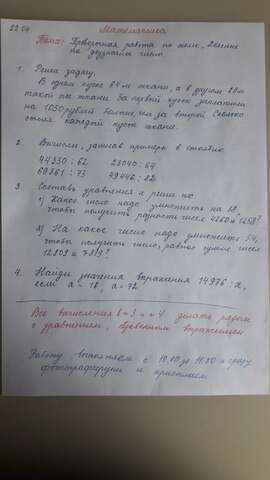 22.04
Математика
Тема: Проверочная работа по теме „Деление
на двузначное число"
1. Реши задачу.
В одном куске 64 м ткани, а в другом 29 м
такой же ткани. За первый кусок заплатили
на 1050 рублей больше, чем за второй. Сколько
стоит каждый кусок ткани.
2. Вычисли, записав примеры в столбик
44330 : 62 23040 : 64
69861 : 73 49446 : 82
3. Составь уравнения и реши их.
1) Какое число надо умножить на 58,
чтобы получить разность чисел 4260 и 1258?
2) На какое число надо умножить 54,
чтобы получить число, равное сумме чисел
12809 и 7819?
4. Найди значения выражения 14976 : а,
если а = 18, а = 72
Все вычисления в 3 и 4 делать рядом
с уравнением, буквенным выражением
Работу выполняем с 10.00 до 11.00 и сразу
фотографируем и присылаем